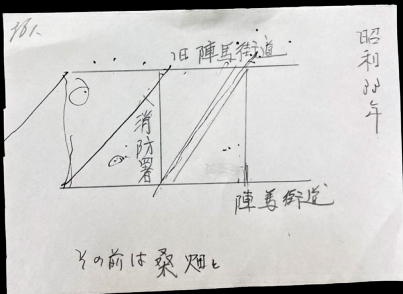 昭和33年
旧 陣馬街道
消防署
陣馬街道
その前は桑畑と